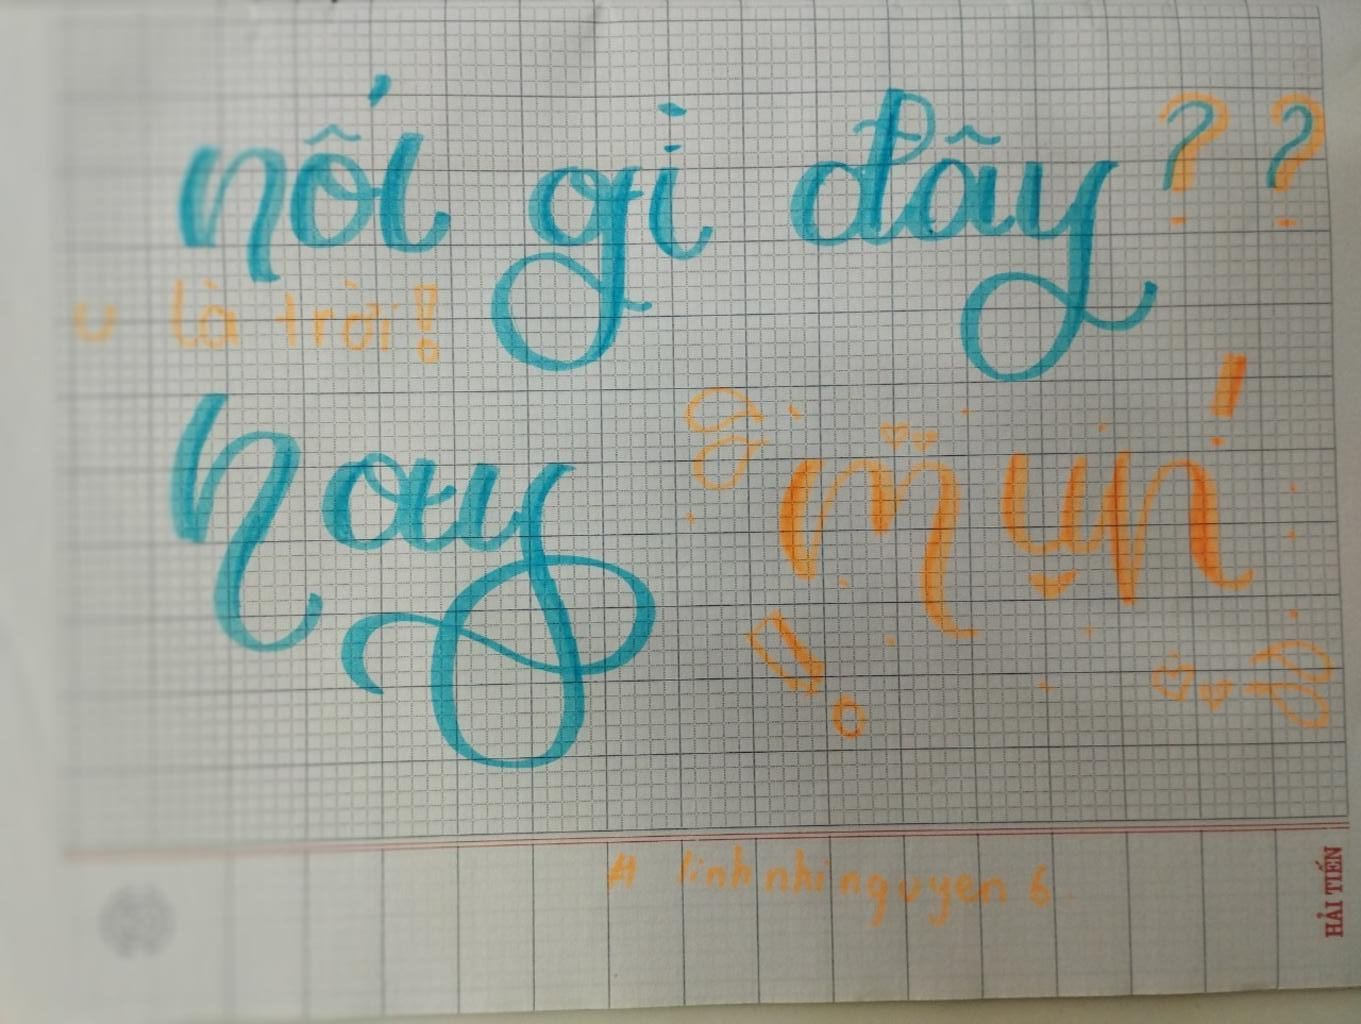 nối gì đây ??
u là trời!
hay mụn!
# linhnhinguyen6
HẢI TIẾN